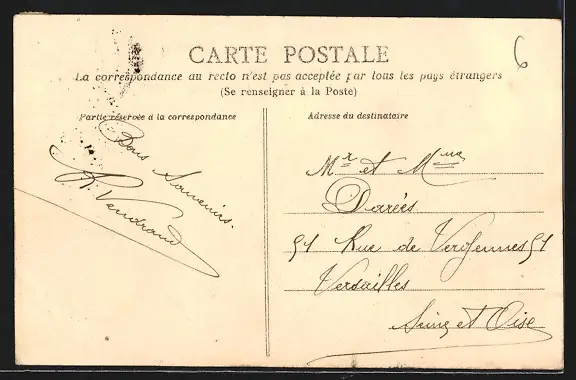 CARTE POSTALE
La correspondance au recto n'est pas acceptée par tous les pays étrangers
(Se renseigner à la Poste)
6
Partie réservée à la correspondance
Bons Souvenirs.
Adresse du destinataire
Mr et Mme
Darées
51 Rue de Vergennes 51
Versailles
Seine et Oise